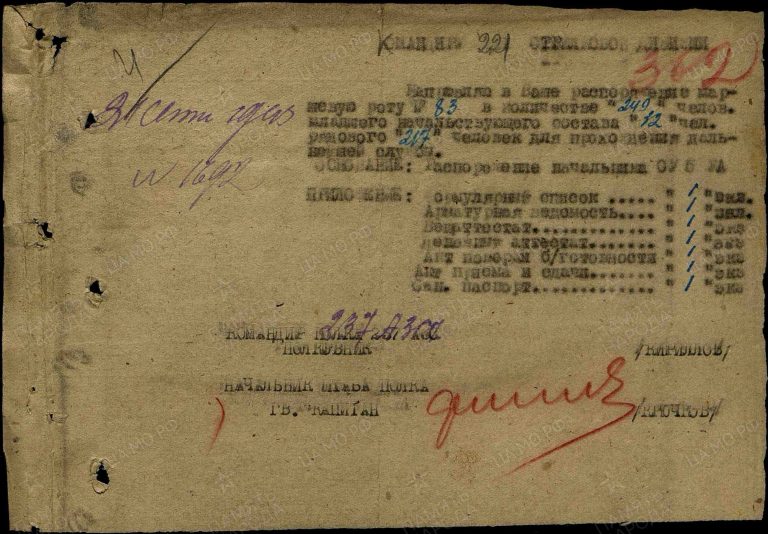 КОМАНДИРУ 221 СТРЕЛКОВОЙ ДИВИЗИИ
362
Направляю в Ваше распоряжение мар-
шевую роту № 83 в количестве "249" челов.
младшего начальствующего состава "32" чел.
рядового "217" человек для прохождения даль-
нейшей службы.
ОСНОВАНИЕ: Распоряжение начальника ОУ 5 РА
№ 1692
ПРИЛОЖЕНИЕ: ..... "1" экз.
Арматурная ведомость.... "1" экз.
Вещаттестат............. "1" экз
Денежный аттестат....... "1" экз
Акт поверки б/готовности "1" экз
Акт приема и сдачи...... "1" экз
Сан. паспорт............ "1" экз
КОМАНДИР ПОЛКА 237 АЗСП
ПОЛКОВНИК /КИРИЛЛОВ/
НАЧАЛЬНИК ШТАБА ПОЛКА
ГВ. КАПИТАН /КРЮЧКОВ/